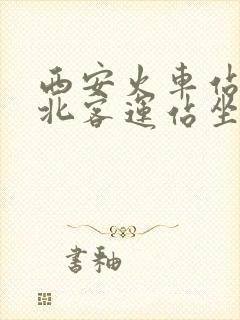 西安火車佔
北客運佔坐
書釉